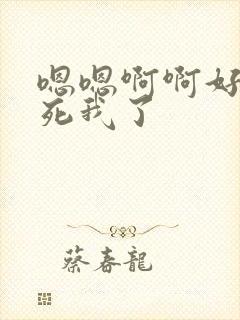 嗯嗯啊啊好
死我了
蔡春龍